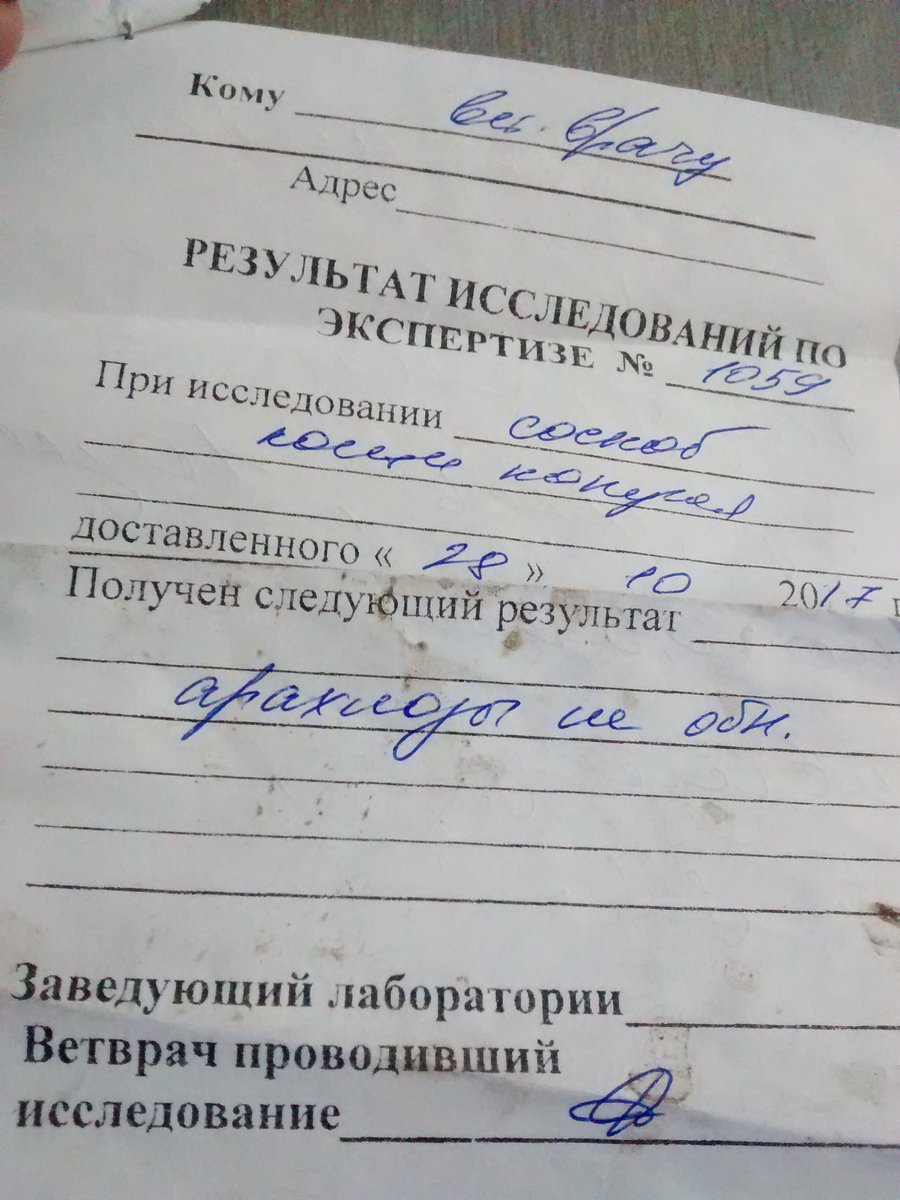 Кому вет. врачу
Адрес
РЕЗУЛЬТАТ ИССЛЕДОВАНИЙ ПО
ЭКСПЕРТИЗЕ № 1059
При исследовании соскоб
кожи попугая
доставленного « 28 » 10 2017 г
Получен следующий результат
арахноды не обн.
Заведующий лаборатории
Ветврач проводивший
исследование